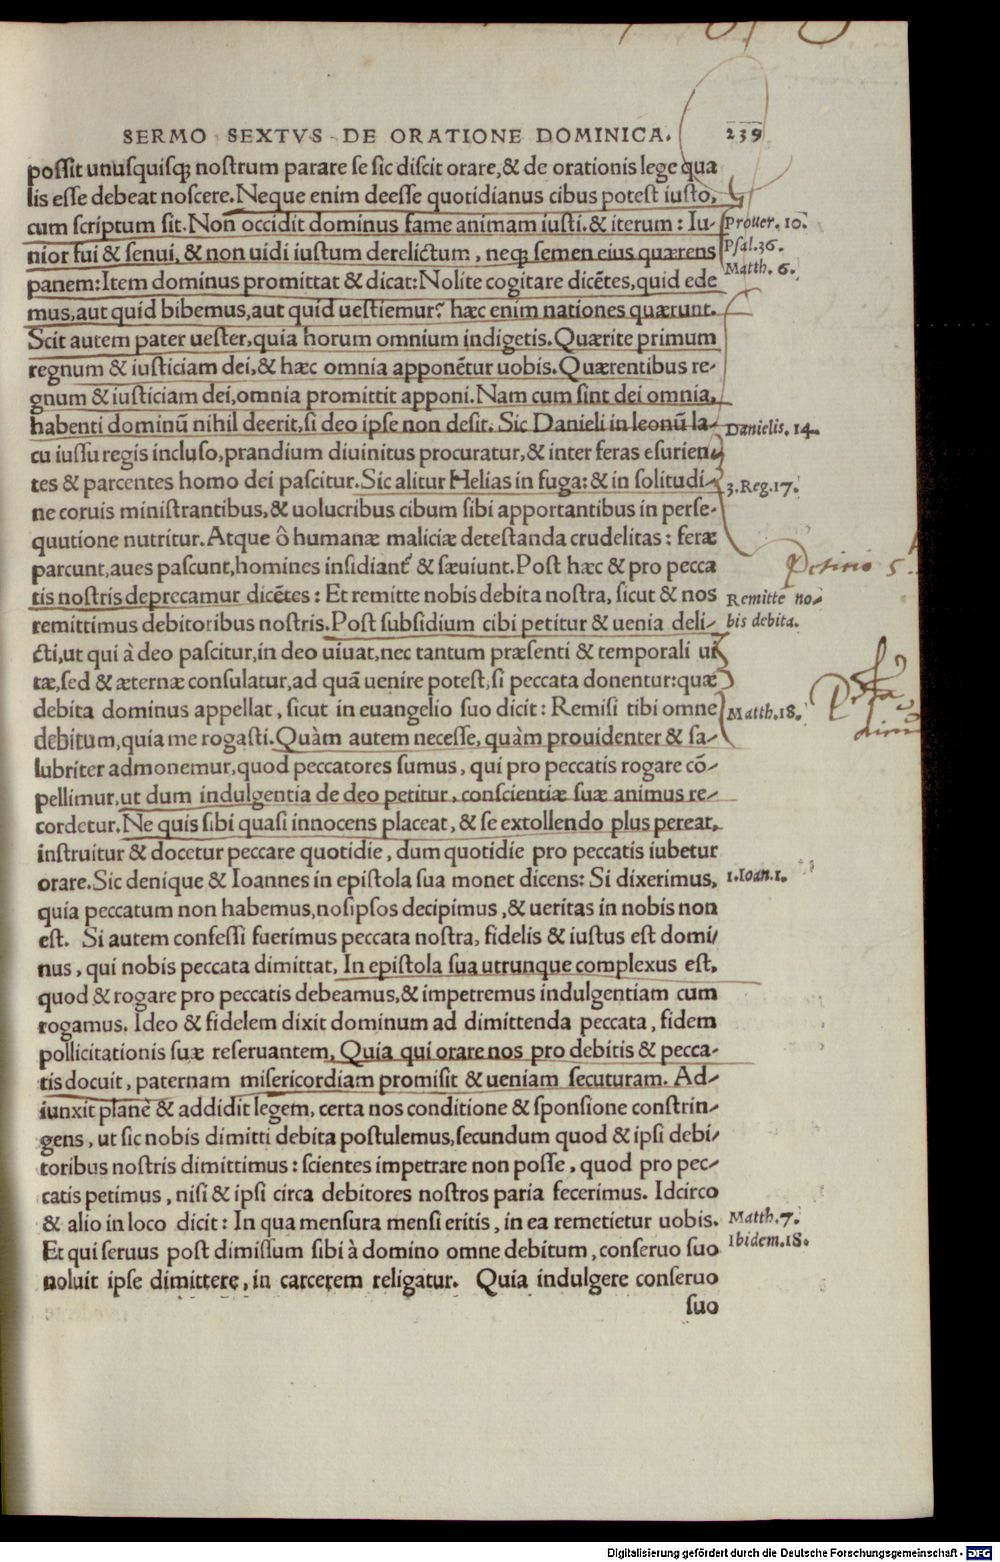 SERMO SEXTVS DE ORATIONE DOMINICA. 239
possit unusquisq; nostrum parare se sic discit orare, & de orationis lege qua
lis esse debeat noscere. Neque enim deesse quotidianus cibus potest iusto,
cum scriptum sit. Non occidit dominus fame animam iusti. & iterum: Iu-
Prouer. 10.
nior fui & senui, & non uidi iustum derelictum, neq; semen eius quærens
Psal. 36.
panem: Item dominus promittat & dicat: Nolite cogitare dicẽtes, quid ede
Matth. 6.
mus, aut quid bibemus, aut quid uestiemur? hæc enim nationes quærunt.
Scit autem pater uester, quia horum omnium indigetis. Quærite primum
regnum & iusticiam dei, & hæc omnia apponẽtur uobis. Quærentibus re-
gnum & iusticiam dei, omnia promittit apponi. Nam cum sint dei omnia,
habenti dominũ nihil deerit, si deo ipse non desit. Sic Danieli in leonũ la-
Danielis. 14.
cu iussu regis incluso, prandium diuinitus procuratur, & inter feras esurien-
tes & parcentes homo dei pascitur. Sic alitur Helias in fuga: & in solitudi-
3. Reg. 17.
ne coruis ministrantibus, & uolucribus cibum sibi apportantibus in perse-
quutione nutritur. Atque ô humanæ maliciæ detestanda crudelitas: feræ
parcunt, aues pascunt, homines insidiant᷑ & sæuiunt. Post hæc & pro pecca
Petitio 5.
tis nostris deprecamur dicẽtes: Et remitte nobis debita nostra, sicut & nos
Remitte no-
remittimus debitoribus nostris. Post subsidium cibi petitur & uenia deli-
bis debita.
cti, ut qui à deo pascitur, in deo uiuat, nec tantum præsenti & temporali ui
tæ, sed & æternæ consulatur, ad quã uenire potest, si peccata donentur: quæ
debita dominus appellat, sicut in euangelio suo dicit: Remisi tibi omne
Matth. 18.
debitum, quia me rogasti. Quàm autem necesse, quàm prouidenter & sa-
lubriter admonemur, quod peccatores sumus, qui pro peccatis rogare cõ-
pellimur, ut dum indulgentia de deo petitur, conscientiæ suæ animus re-
cordetur. Ne quis sibi quasi innocens placeat, & se extollendo plus pereat,
instruitur & docetur peccare quotidie, dum quotidie pro peccatis iubetur
orare. Sic denique & Ioannes in epistola sua monet dicens: Si dixerimus,
1. Ioan. 1.
quia peccatum non habemus, nosipsos decipimus, & ueritas in nobis non
est. Si autem confessi fuerimus peccata nostra, fidelis & iustus est domi-
nus, qui nobis peccata dimittat, In epistola sua utrunque complexus est,
quod & rogare pro peccatis debeamus, & impetremus indulgentiam cum
rogamus. Ideo & fidelem dixit dominum ad dimittenda peccata, fidem
pollicitationis suæ reseruantem, Quia qui orare nos pro debitis & pecca-
tis docuit, paternam misericordiam promisit & ueniam secuturam. Ad-
iunxit planè & addidit legem, certa nos conditione & sponsione constrin-
gens, ut sic nobis dimitti debita postulemus, secundum quod & ipsi debi-
toribus nostris dimittimus: scientes impetrare non posse, quod pro pec-
catis petimus, nisi & ipsi circa debitores nostros paria fecerimus. Idcirco
& alio in loco dicit: In qua mensura mensi eritis, in ea remetietur uobis.
Matth. 7.
Et qui seruus post dimissum sibi à domino omne debitum, conseruo suo
Ibidem. 18.
noluit ipse dimittere, in carcerem religatur. Quia indulgere conseruo
suo
Digitalisierung gefördert durch die Deutsche Forschungsgemeinschaft - DFG